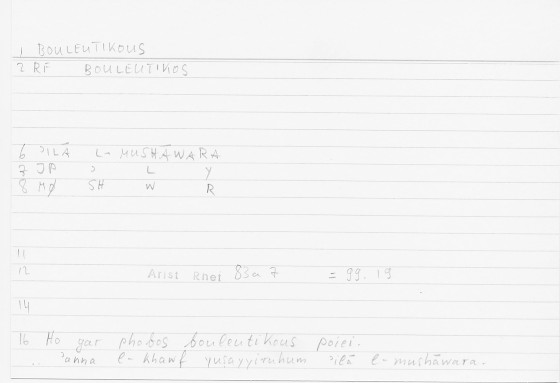 1 BOULEUTIKOUS
2 RF BOULEUTIKOS
6 ʾILĀ L-MUSHĀWARA
7 JP ʾ L Y
8 MØ SH W R
11
12 Arist Rhet 83a7 = 99.19
14
16 Ho gar phobos bouleutikous poiei.
.. ʾanna l-khawf yuṣayyiruhum ʾilā l-mushāwara.